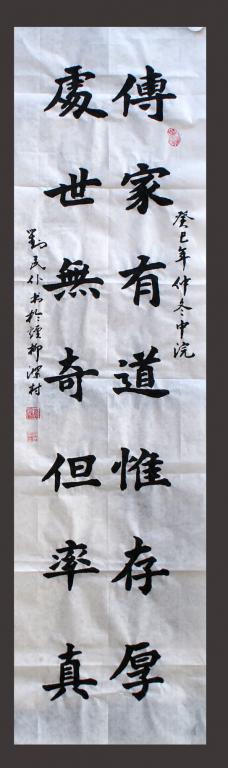 傳家有道惟存厚
癸巳年仲冬中浣
處世無奇但率真
劉民仆书於煙柳深村